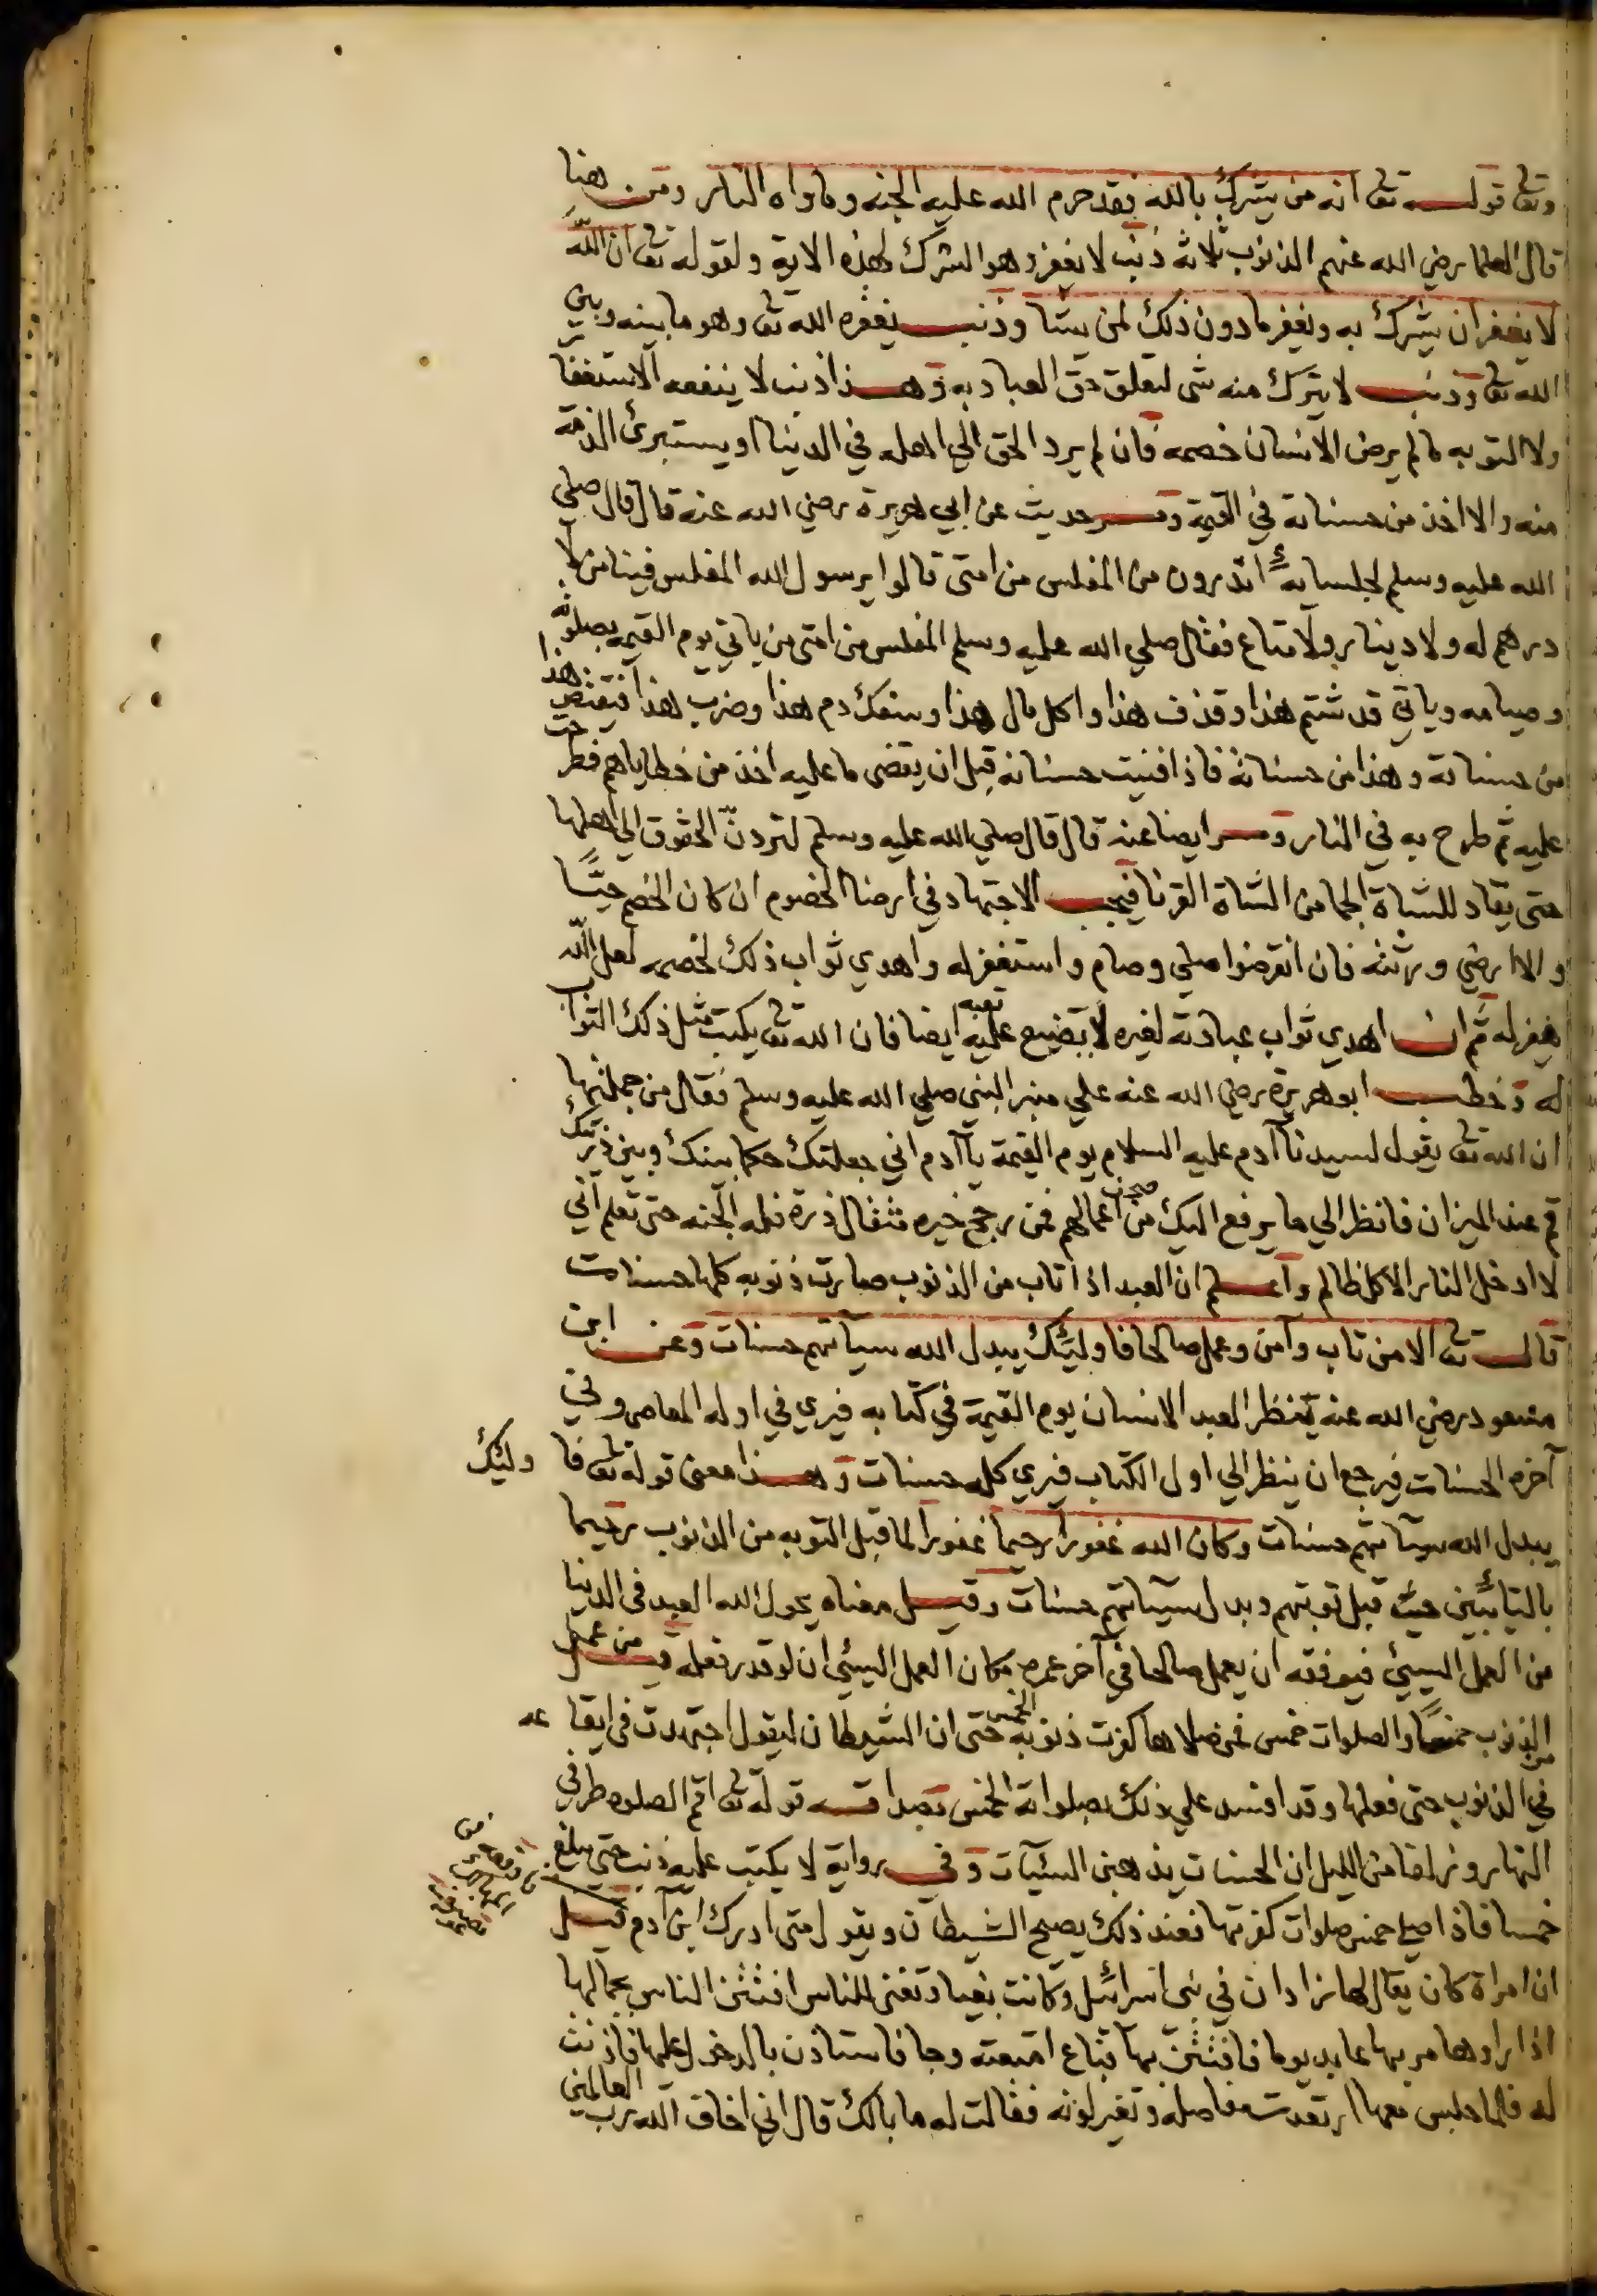 وتعالى قوله تعالى انه من يشرك بالله فقد حرم الله عليه الجنه وماواه النار ومن هنا
قال العلما رضي الله عنهم الذنوب ثلاثه ذنب لا يغفر وهو الشرك لهذه الاية ولقوله تعالى ان الله
لا يغفر ان يشرك به ويغفر ما دون ذلك لمن يشا وذنب يغفره الله تعالى وهو ما بينه وبين
الله تعالى وذنب لا يترك منه شى لتعلق حق العباد به وهذا ذنب لا ينفعه الاستغفا
ولا التوبه ما لم يرض الانسان خصمه فان لم يرد الحق الي اهله في الدنيا او يستبرئ الذمة
منه والا اخذ من حسناته في القيمة وفي حديث عن ابي هريرة رضي الله عنه قال قال صلي
الله عليه وسلم لجلسائه اتدرون من المفلس من امتى قالوا يرسول الله المفلس فينا من لا
درهم له ولا دينار ولا متاع فقال صلي الله عليه وسلم المفلس من امتى من ياتي يوم القيمه بصلوته
وصيامه وياتي قد شتم هذا وقذف هذا واكل مال هذا وسفك دم هذا وضرب هذا فيقتص هذا
من حسناته وهذا من حسناته فاذا فنيت حسناته قبل ان يقضى ما عليه اخذ من خطاياهم فطرحت
عليه ثم طرح به في النار وفي ايضا عنه قال قال صلي الله عليه وسلم لتردنّ الحقوق الي اهلها
حتى يقاد للشاة الجما من الشاة القرنا فيجب الاجتهاد في ارضا الخصوم ان كان الخصم حيًّا
والا ارضي ورثته فان انقرضوا صلي وصام واستغفر له واهدي ثواب ذلك لخصمه لعل الله
يغفر له ثم ان اهدي ثواب عبادته لغيره لا يضيع عليه تعبه ايضا فان الله تعالى يكتب مثل ذلك الثواب
له وخطب ابو هريرة رضي الله عنه علي منبر النبي صلي الله عليه وسلم فقال من جملتها
ان الله تعالى يقول لسيدنا آدم عليه السلام يوم القيمة يا آدم اني جعلتك حكما بينك وبين ذريتك
قم عند الميزان فانظر الي ما يرفع اليك من صحف اعمالهم فمن رجح خيره مثقال ذرة فله الجنه حتى تعلم اني
لا ادخل النار الا كل ظالم واعلم ان العبد اذا تاب من الذنوب صارت ذنوبه كلها حسنات
قال تعالى الا من تاب وآمن وعمل صالحا فاوليئك يبدل الله سيآتهم حسنات وعن ابن
مسعود رضي الله عنه ينظر العبد الانسان يوم القيمة في كتابه فيري في اوله المعاصي وفي
آخره الحسنات فيرجع ان ينظر الي اول الكتاب فيري كله حسنات وهذا معنى قوله تعالى فا وليئك
يبدل الله سيآتهم حسنات وكان الله غفورا رحيما غفورا لما قبل التوبه من الذنوب رحيما
بالتائبين حيث قبل توبتهم وبدل سيآتهم حسنات وقيل معناه يحول الله العبد فى الدنيا
من العمل السيئ فيوفقه ان يعمل صالحا في آخر عمره مكان العمل السيئ ان لو قدر فعله قيل من عمل
من الذنوب خمسًا والصلوات خمس فمن صلاها كفرت ذنوبه الخمس حتى ان الشيطان ليقول اجتهدت فى ايقا عه
في الذنوب حتى فعلها وقد افسد علي ذلك بصلواته الخمس قوله تعالى اقم الصلوة طرفي
النهار وزلفا من الليل ان الحسنات يذهبن السئيآت وفي رواية لا يكتب عليه ذنب حتى يبلغ
خمسا فاذا صلي خمس صلوات كفرتها فعند ذلك يصيح الشيطان ويقول متى ادرك ابن آدم قيل
ان امراة كان يقال لها زادان في بنى اسرائيل وكانت بغيا وتفتن للناس افتتن الناس بجمالها
اذا راوها مر بها عابد يوما فافتتن بها فباع امتعته وجا فاستاذن بالدخول عليها فاذنت
له فلما جلس معها ارتعدت مفاصله وتغير لونه فقالت له ما بالك قال اني اخاف الله رب العالمين